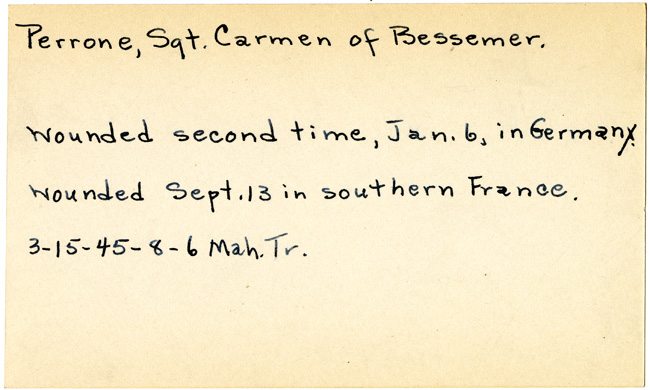 Perrone, Sgt. Carmen of Bessemer.
Wounded second time, Jan. 6, in Germany.
Wounded Sept. 13 in southern France.
3-15-45-8-6 Mah. Tr.